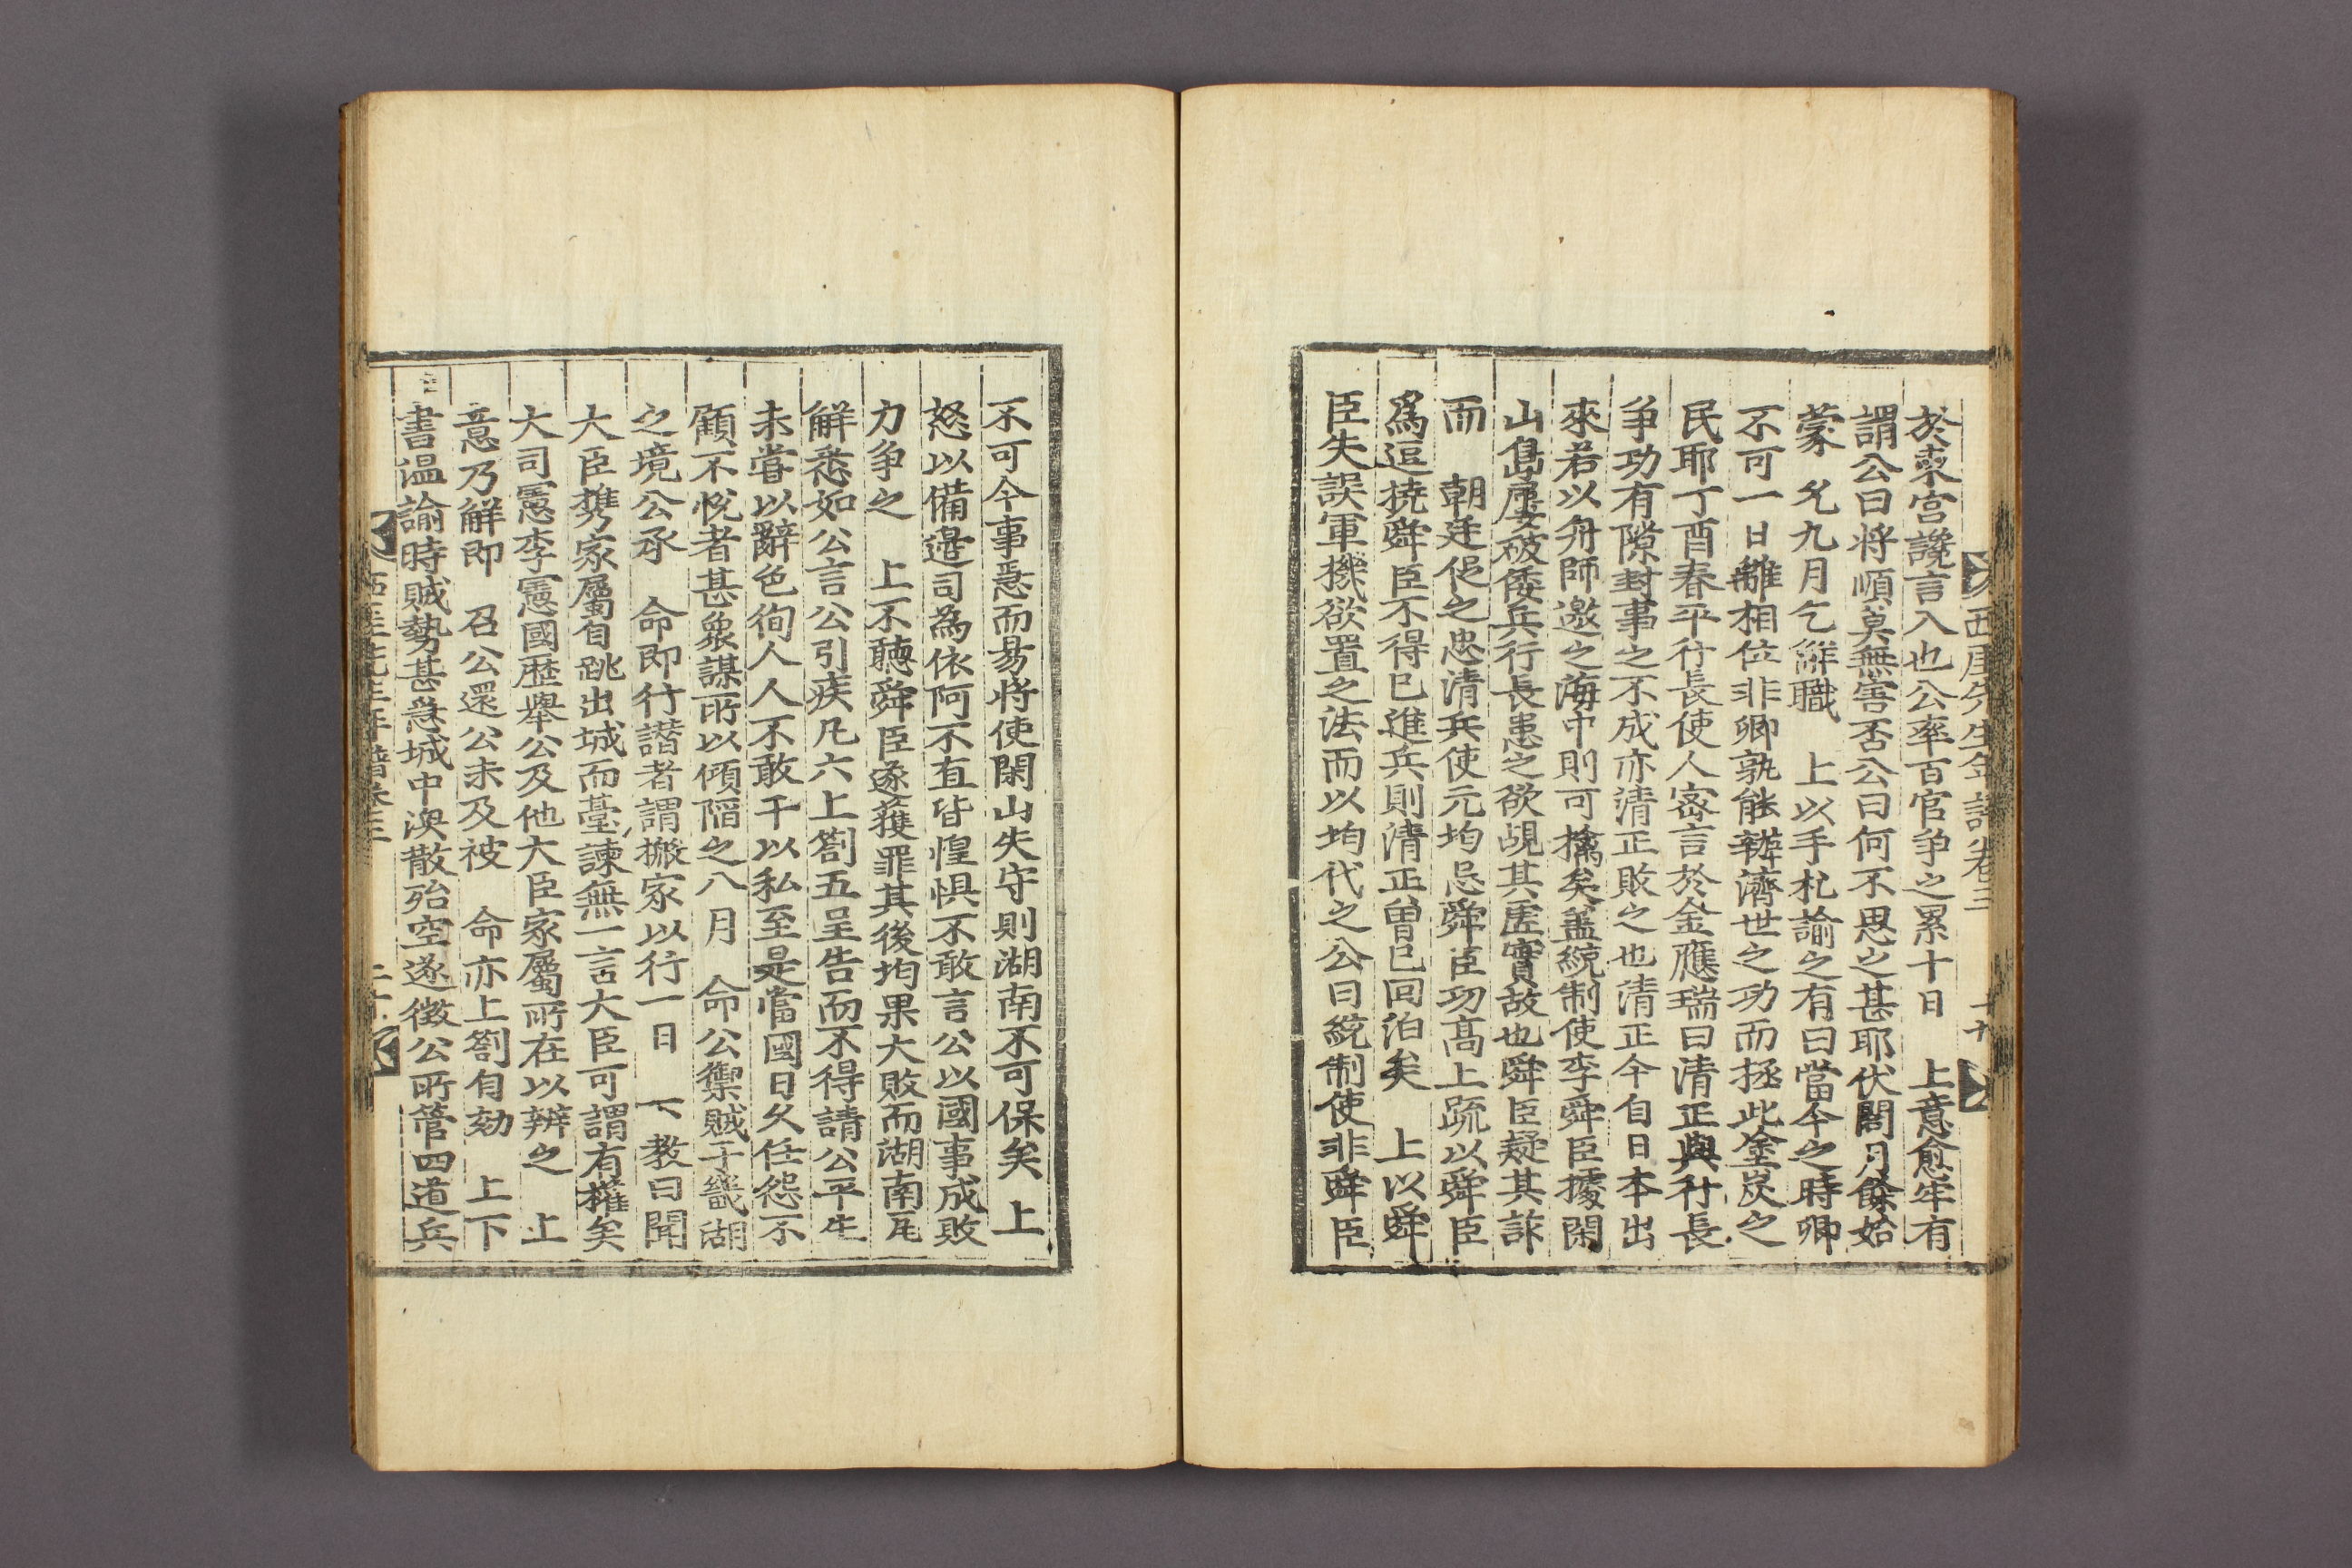 西厓先生年譜卷三 十九
於東宮讒言入也公率百官爭之累十日 上意愈牢有
謂公曰將順莫無害否公曰何不思之甚耶伏閤月餘始
蒙 允九月乞解職 上以手札諭之有曰當今之時卿
不可一日離相位非卿孰能辦濟世之功而拯此塗炭之
民耶丁酉春平行長使人密言於金應瑞曰淸正與行長
爭功有隙封事之不成亦淸正敗之也淸正今自日本出
來若以舟師邀之海中則可擒矣盖統制使李舜臣據閑
山島屢破倭兵行長患之欲覘其虛實故也舜臣疑其詐
而 朝廷促之忠淸兵使元均忌舜臣功高上疏以舜臣
爲逗撓舜臣不得已進兵則淸正曾已回泊矣 上以舜
臣失誤軍機欲置之法而以均代之公曰統制使非舜臣
不可今事急而易將使閑山失守則湖南不可保矣 上
怒以備邊司爲依阿不直皆惶惧不敢言公以國事成敗
力爭之 上不聽舜臣遂獲罪其後均果大敗而湖南瓦
解悉如公言公引疾凡六上箚五呈告而不得請公平生
未嘗以辭色徇人人不敢干以私至是當國日久任怨不
顧不悅者甚衆謀所以傾陷之八月 命公禦賊于畿湖
之境公承 命卽行譖者謂搬家以行一日 下敎曰聞
大臣携家屬自跳出城而臺諫無一言大臣可謂有權矣
大司憲李憲國歷擧公及他大臣家屬所在以辨之 上
意乃解卽 召公還公未及被 命亦上箚自劾 上下
書溫諭時賊勢甚急城中渙散殆空遂徵公所管四道兵
西厓先生年譜卷三